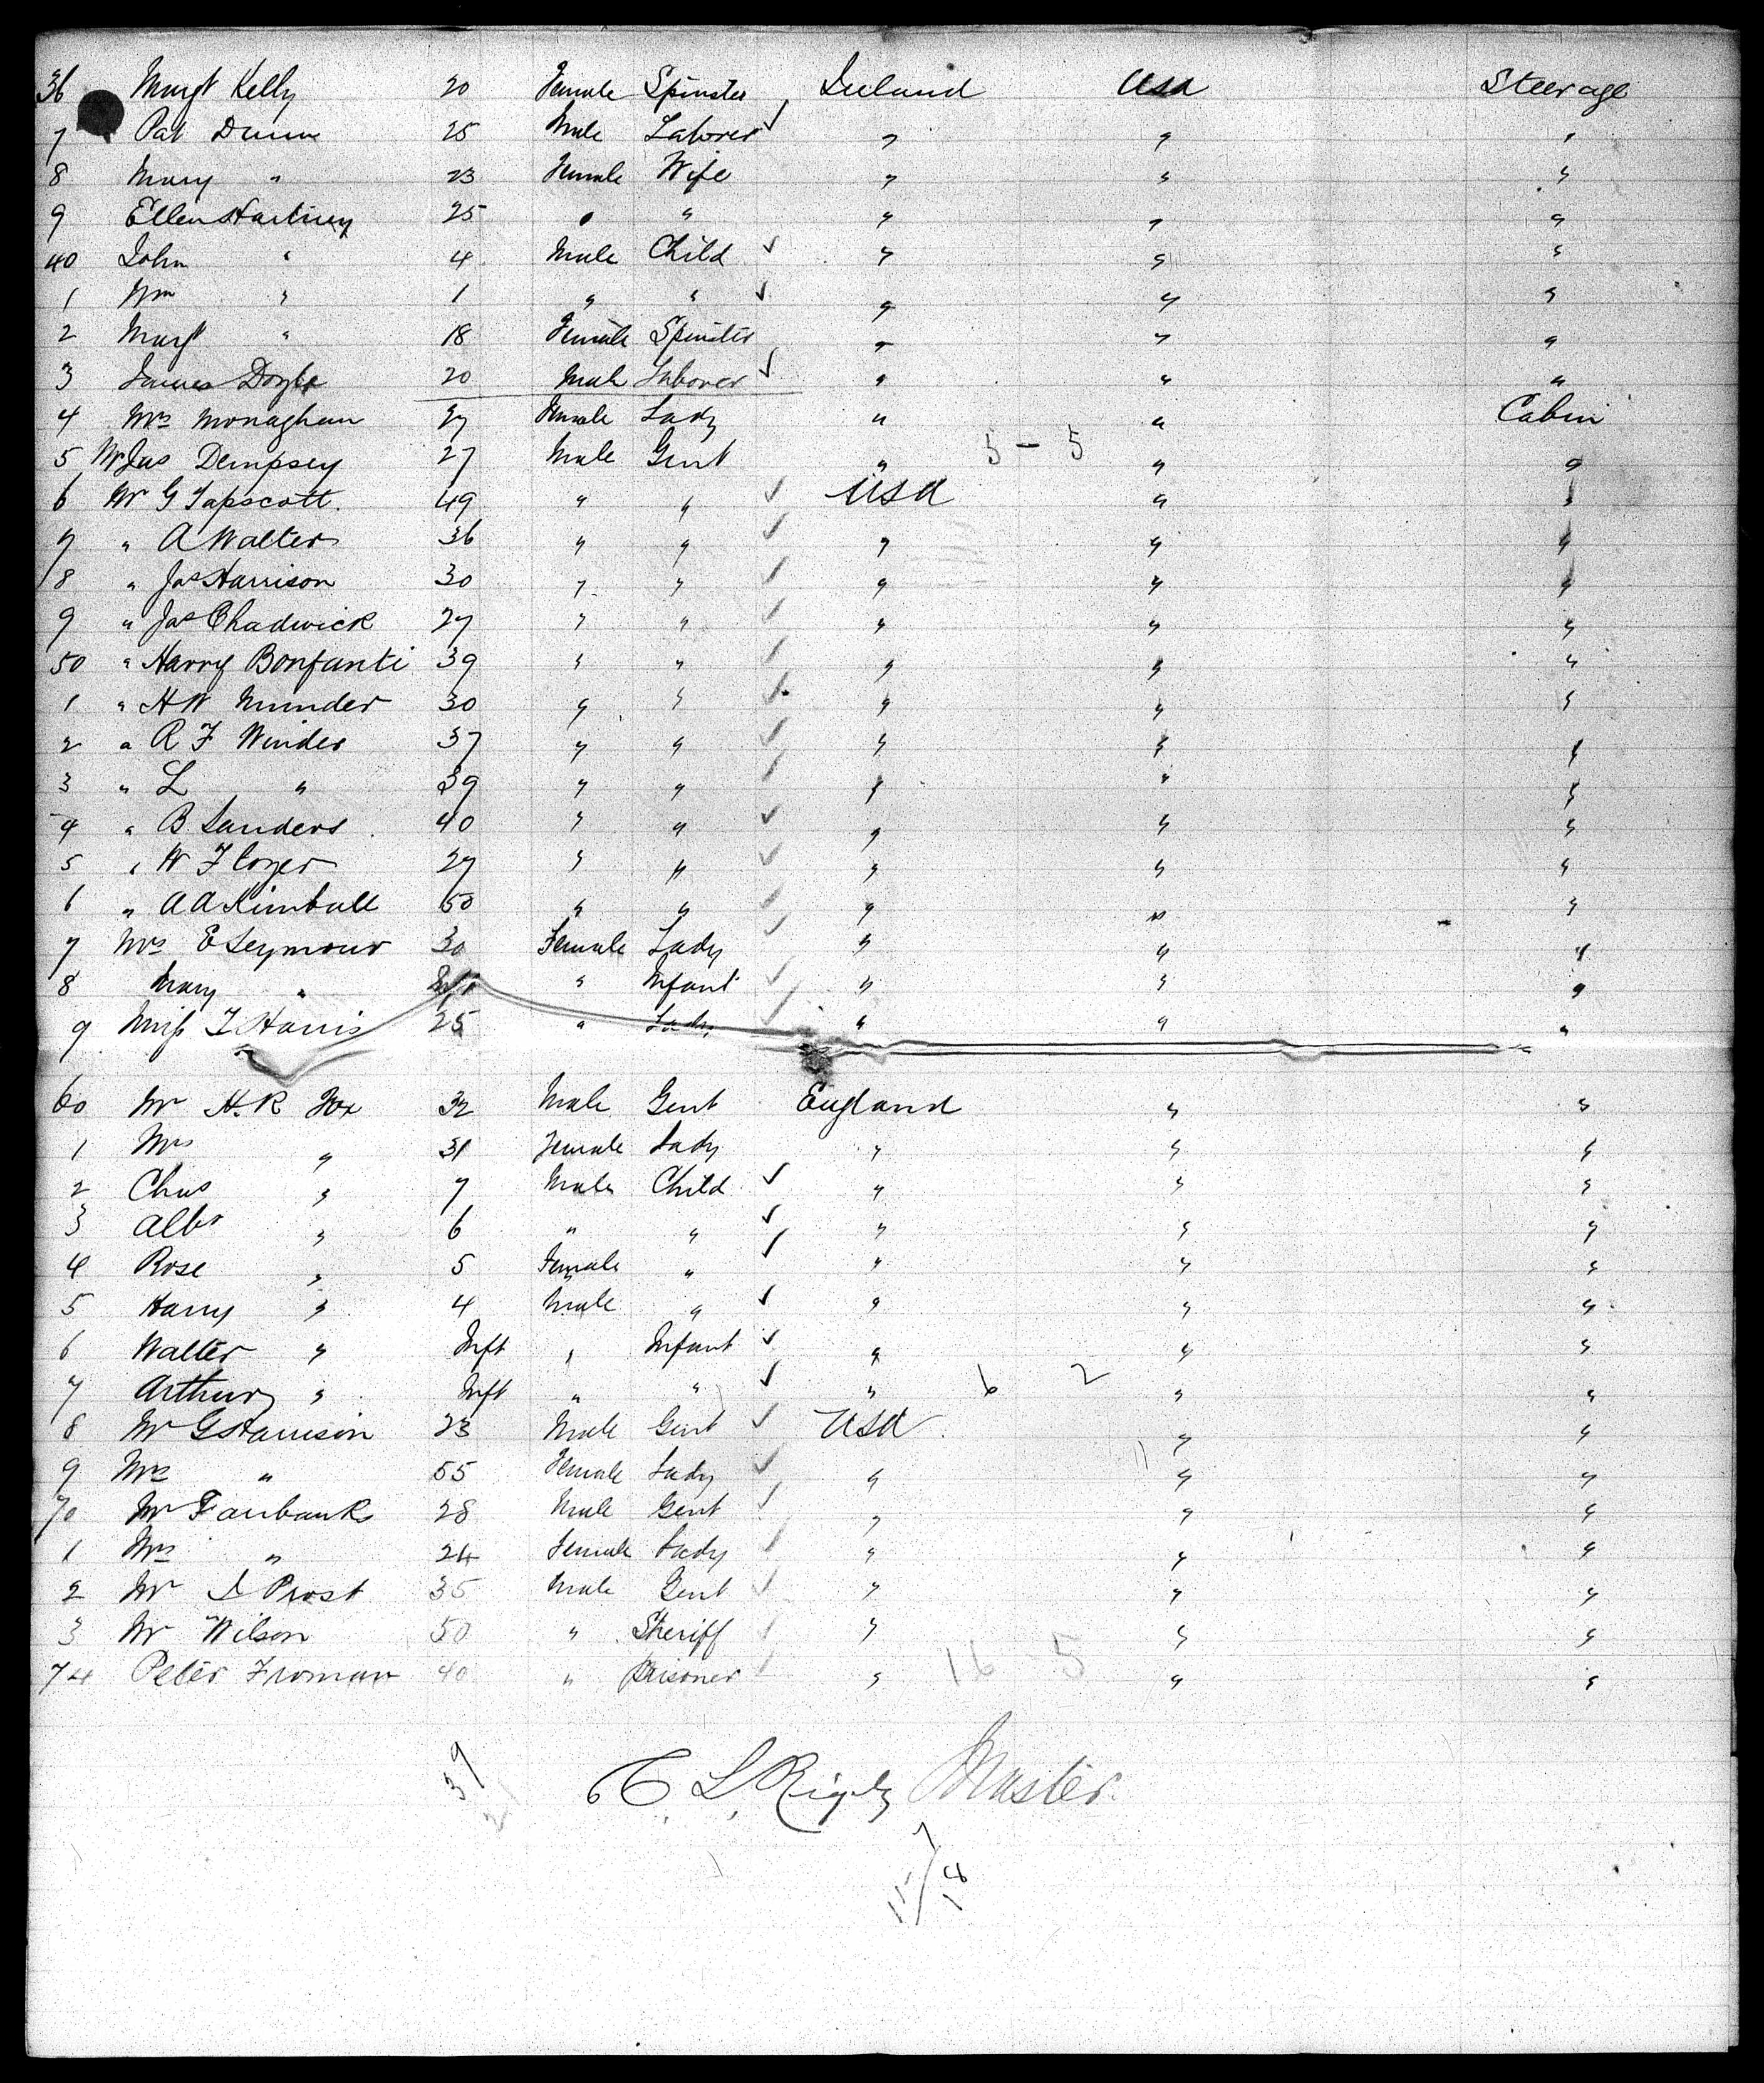 36 Margt Kelly 20 Female Spinster Ireland USA Steerage
7 Pat Dunne 25 Male Laborer " " "
8 Mary " 23 Female Wife " " "
9 Ellen 25 " " " " "
40 John " 4 Male Child " " "
1 Wm " 1 " " " " "
2 Margt " 18 Female Spinster " " "
3 James Doyle 20 Male Laborer " " "
4 Mrs Monaghan 27 Female Lady " " Cabin
5 Mr Jas Dempsey 27 Male Gent " 5 - 5 " "
6 Mr G Tapscott. 49 " " USA " "
7 " A Walter 36 " " " " "
8 " Jas Harrison 30 " " " " "
9 " Jas Chadwick 27 " " " " "
50 " Harry Bonfanti 39 " " " " "
1 " H W Munder 30 " " " " "
2 " R F Winder 37 " " " " "
3 " L " 39 " " " " "
4 " B Sanders 40 " " " " "
5 " W F 27 " " " " "
6 " A A Kimball 50 " " " " "
7 Mrs E Seymour 30 Female Lady " " "
8 Mary " " Infant " " "
9 Miss T Harris 25 " Lady " " "
60 Mr H. R Fox 32 Male Gent England " "
1 Mrs " 31 Female Lady " " "
2 Chas " 7 Male Child " " "
3 Albt " 6 " " " " "
4 Rose " 5 Female " " " "
5 Harry " 4 Male " " " "
6 Walter " Inft " Infant " " "
7 Arthur " Inft " " " 6 2 " "
8 Mr G Harrison 23 Male Gent USA " "
9 Mrs " 55 Female Lady " " "
70 Mr Fairbanks 28 Male Gent " " "
1 Mrs " 24 Female Lady " " "
2 Mr Prost 35 Male Gent " " "
3 Mr Wilson 50 " Sheriff " " "
74 Peter Froman 40 " Prisoner " 16 - 5 " "
39
C. L. Rigby Master.